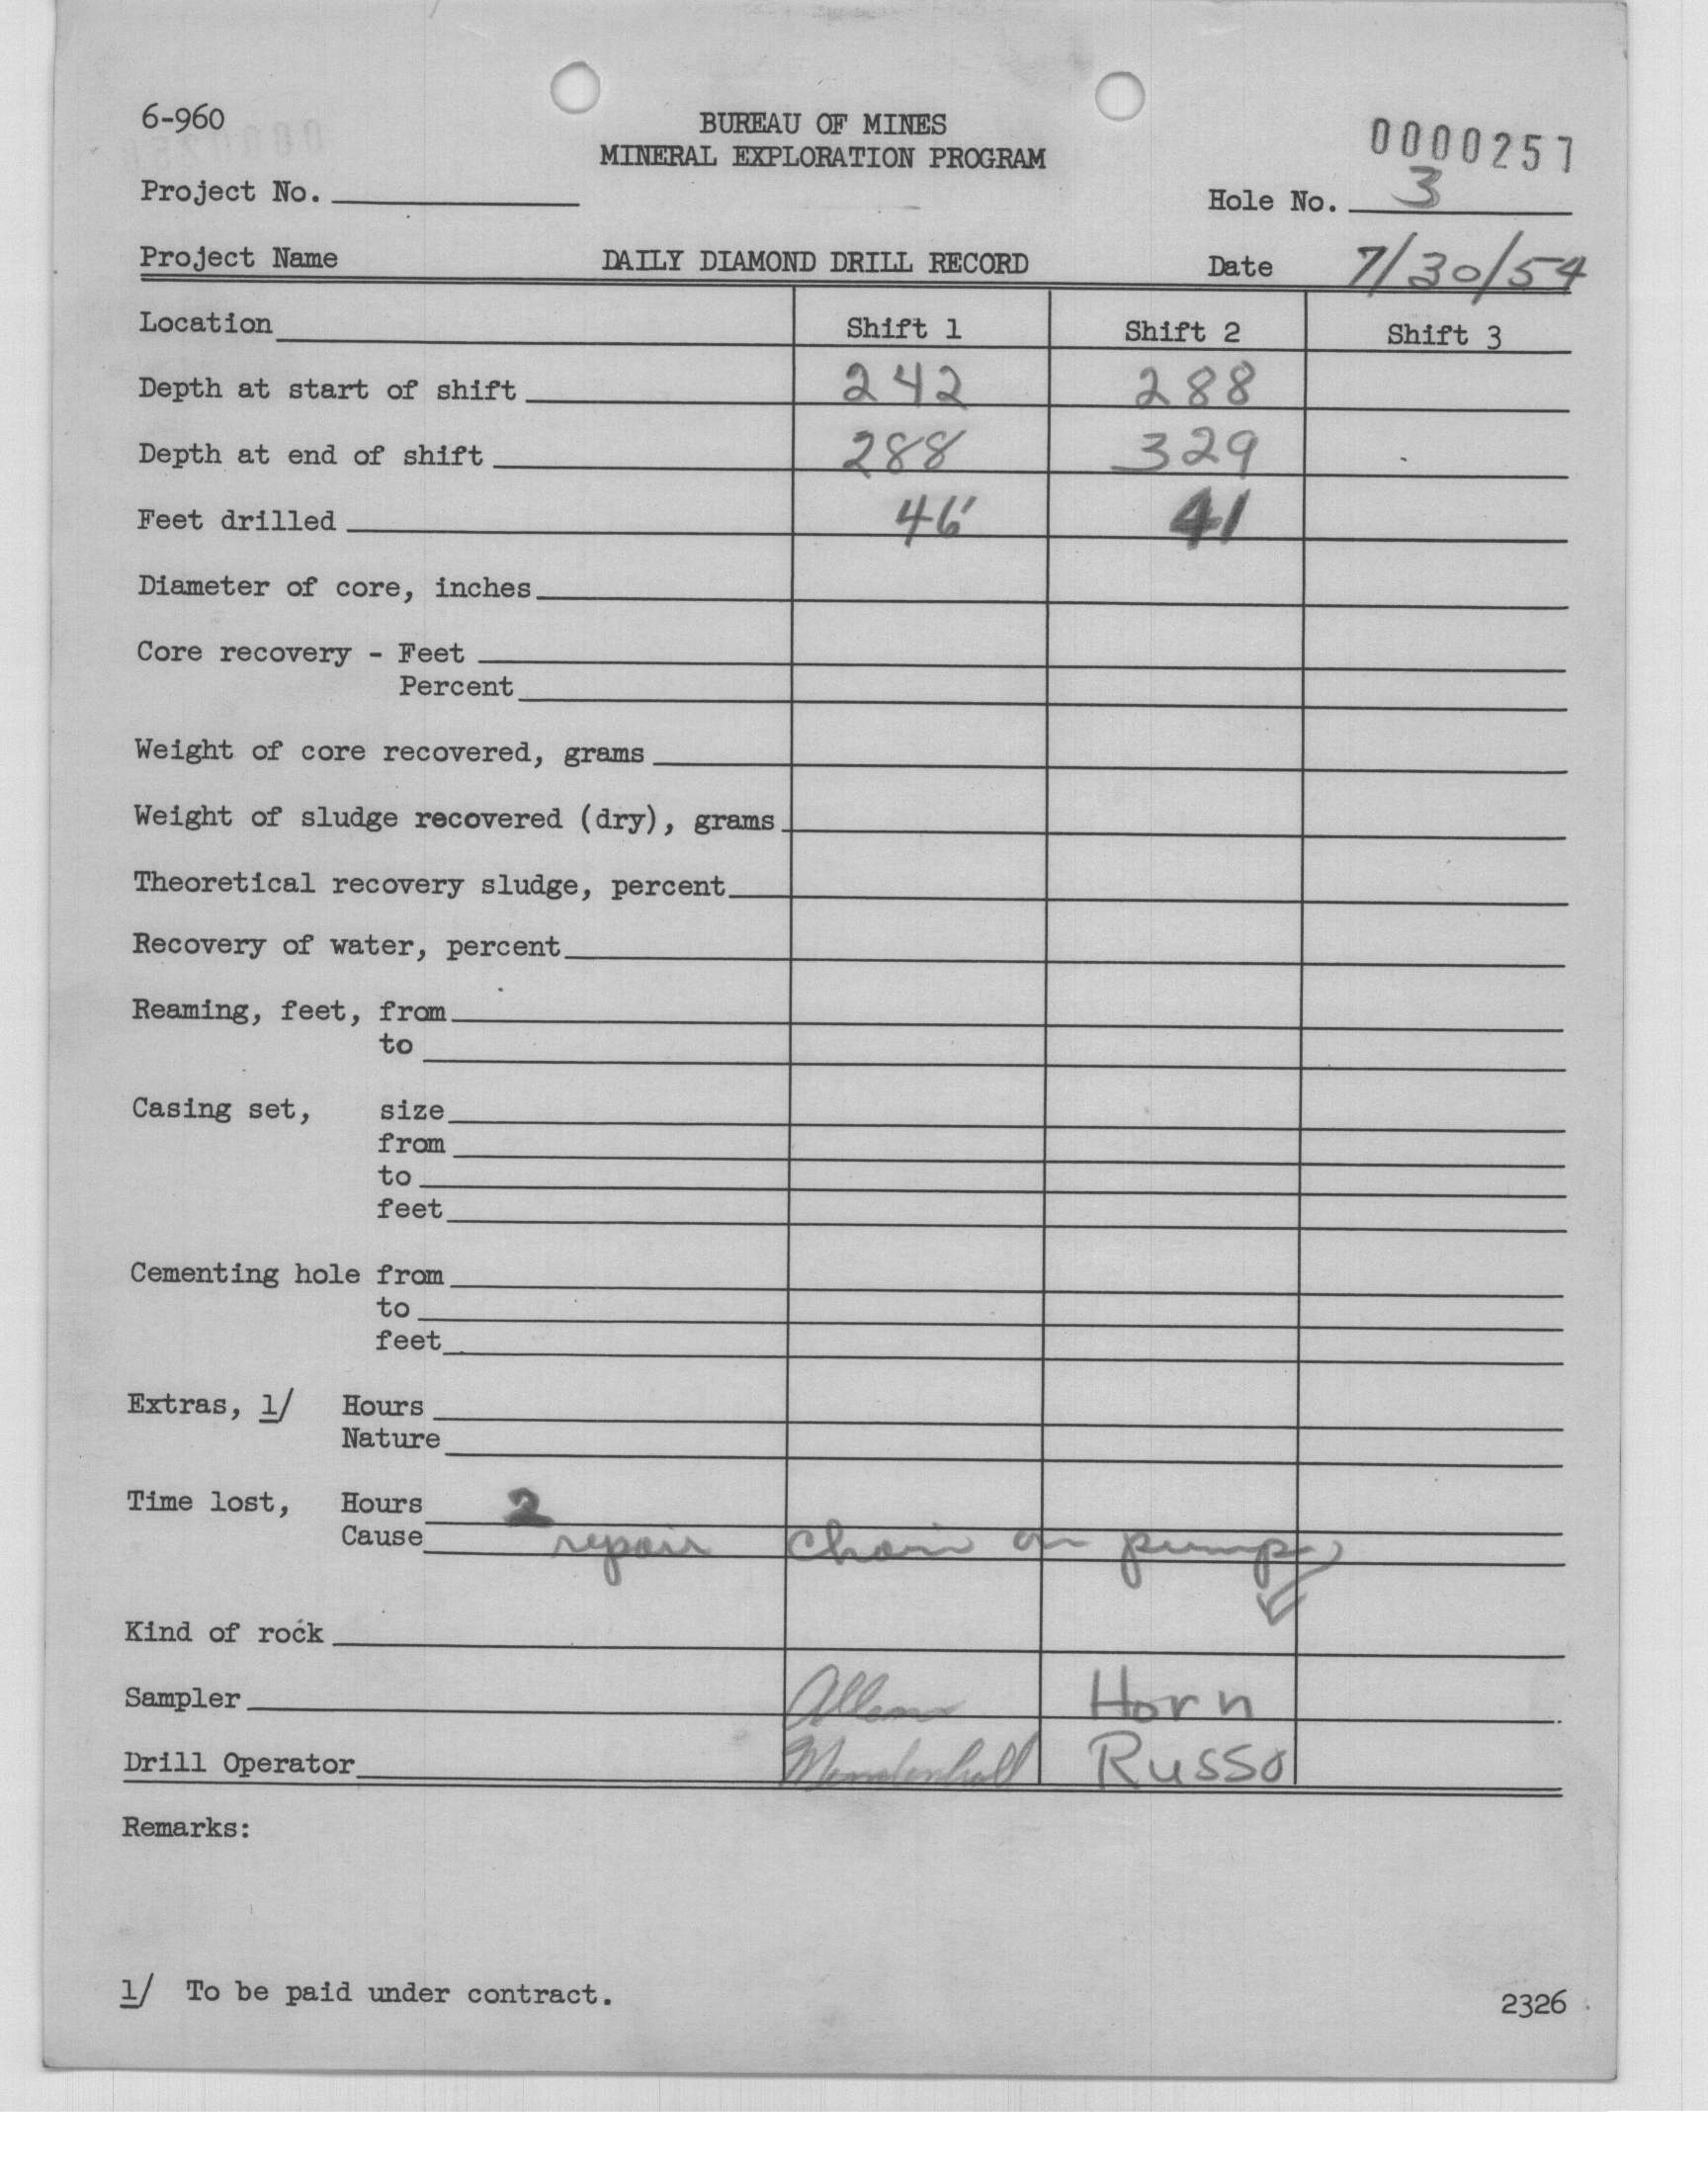 6-960
BUREAU OF MINES
MINERAL EXPLORATION PROGRAM
0000257
Project No.
Hole No. 3
Project Name DAILY DIAMOND DRILL RECORD Date 7/30/54
Location Shift 1 Shift 2 Shift 3
Depth at start of shift 242 288
Depth at end of shift 288 329
Feet drilled 46' 41
Diameter of core, inches
Core recovery - Feet
Percent
Weight of core recovered, grams
Weight of sludge recovered (dry), grams
Theoretical recovery sludge, percent
Recovery of water, percent
Reaming, feet, from
to
Casing set, size
from
to
feet
Cementing hole from
to
feet
Extras, 1/ Hours
Nature
Time lost, Hours 2
Cause repair chain on pump
Kind of rock
Sampler Horn
Drill Operator Mendenhall Russo
Remarks:
1/ To be paid under contract.
2326